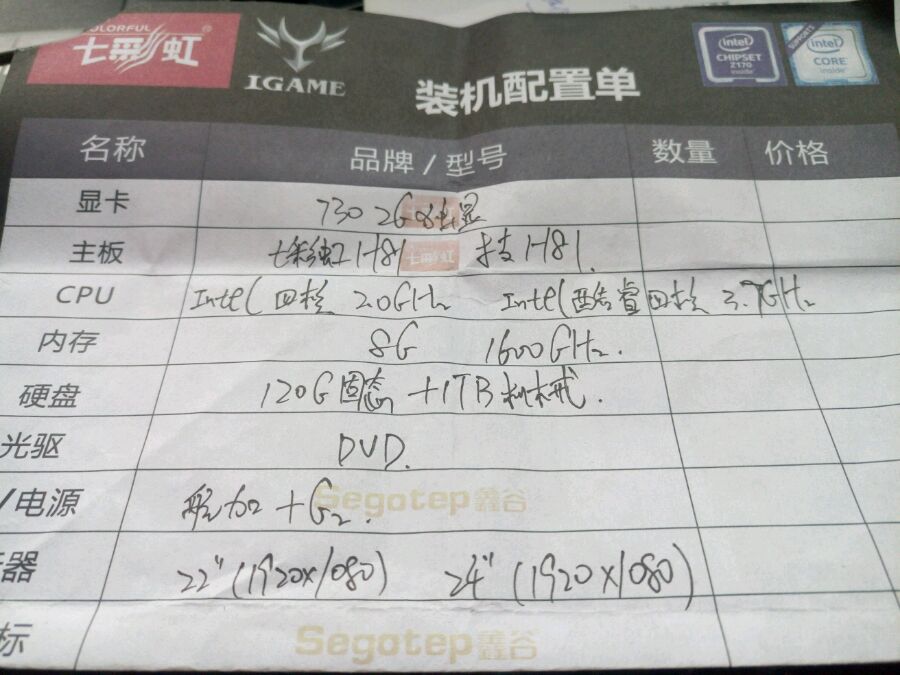 COLORFUL
七彩虹
IGAME
装机配置单
intel CHIPSET Z170 inside
SUPPORTS intel CORE inside
名称 品牌/型号 数量 价格
显卡 730 2G独显
主板 七彩虹H81 技H81.
CPU Intel四核 2.0GHz Intel酷睿四核 3.7GHz
内存 8G 1600GHz.
硬盘 120G固态+1TB机械.
光驱 DVD.
/电源 航加+G2. Segotep鑫谷
器 22"(1920x1080) 24"(1920x1080)
标 Segotep鑫谷